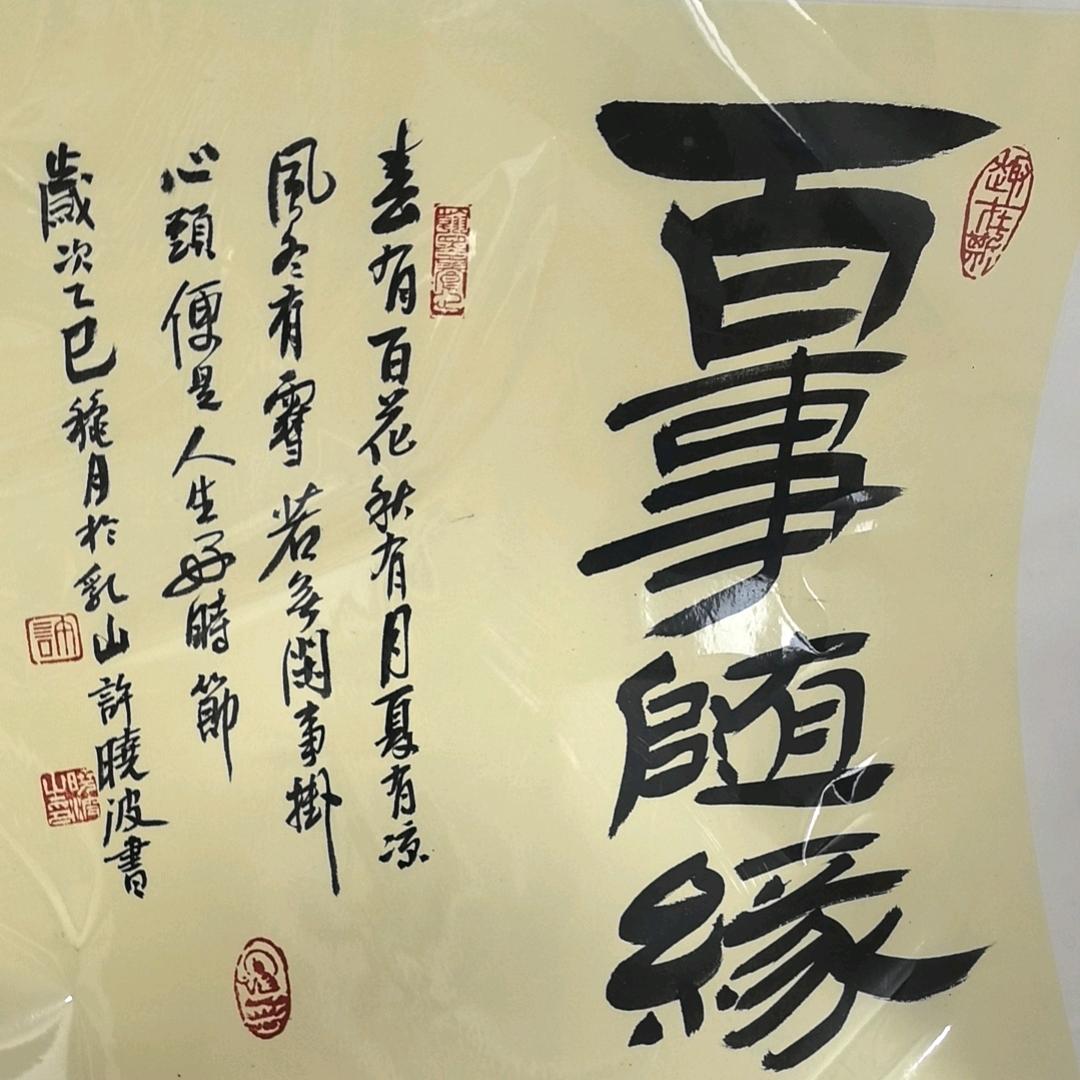 百事随緣
春有百花秋有月夏有涼
風冬有雪若無閑事掛
心頭便是人生好時節
歲次乙巳穐月於乳山許曉波書
許